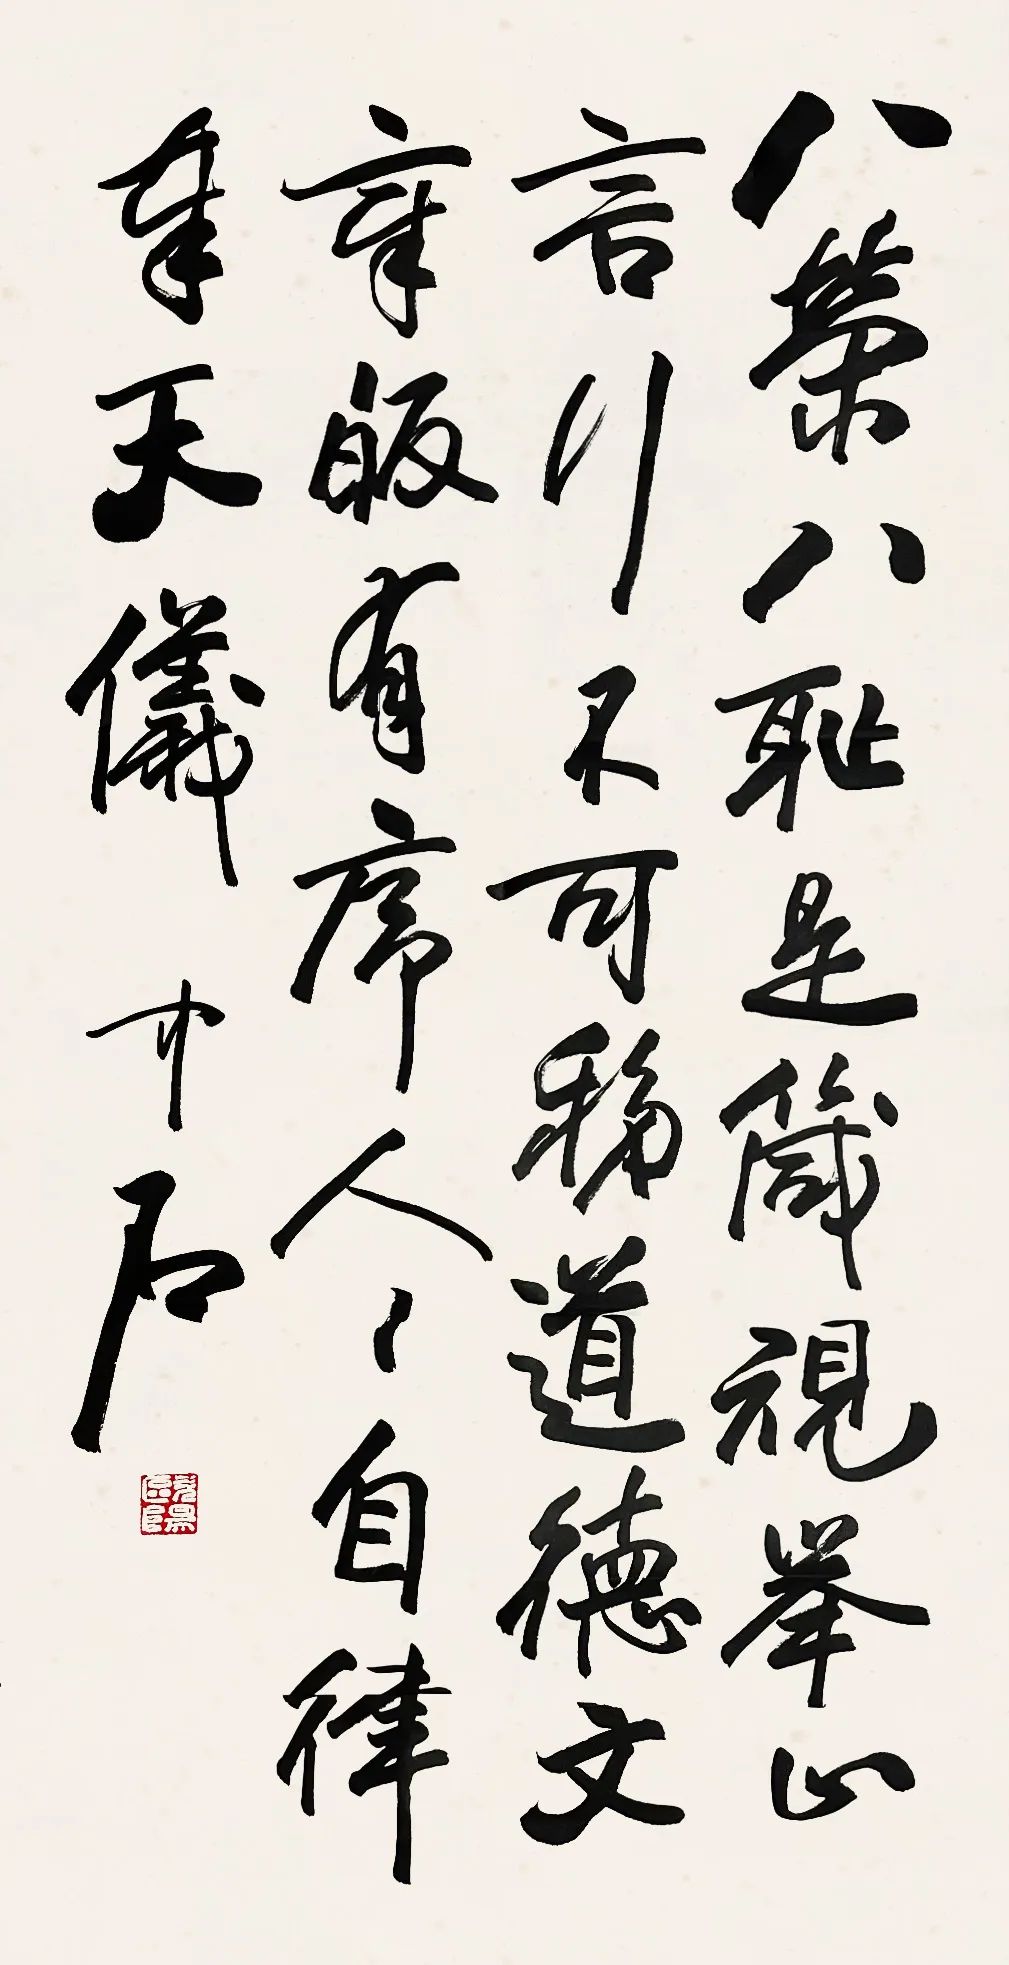 八榮八耻是箴規举止
言行不可移道德文
章皈有序人〻自律
奉天儀 中石